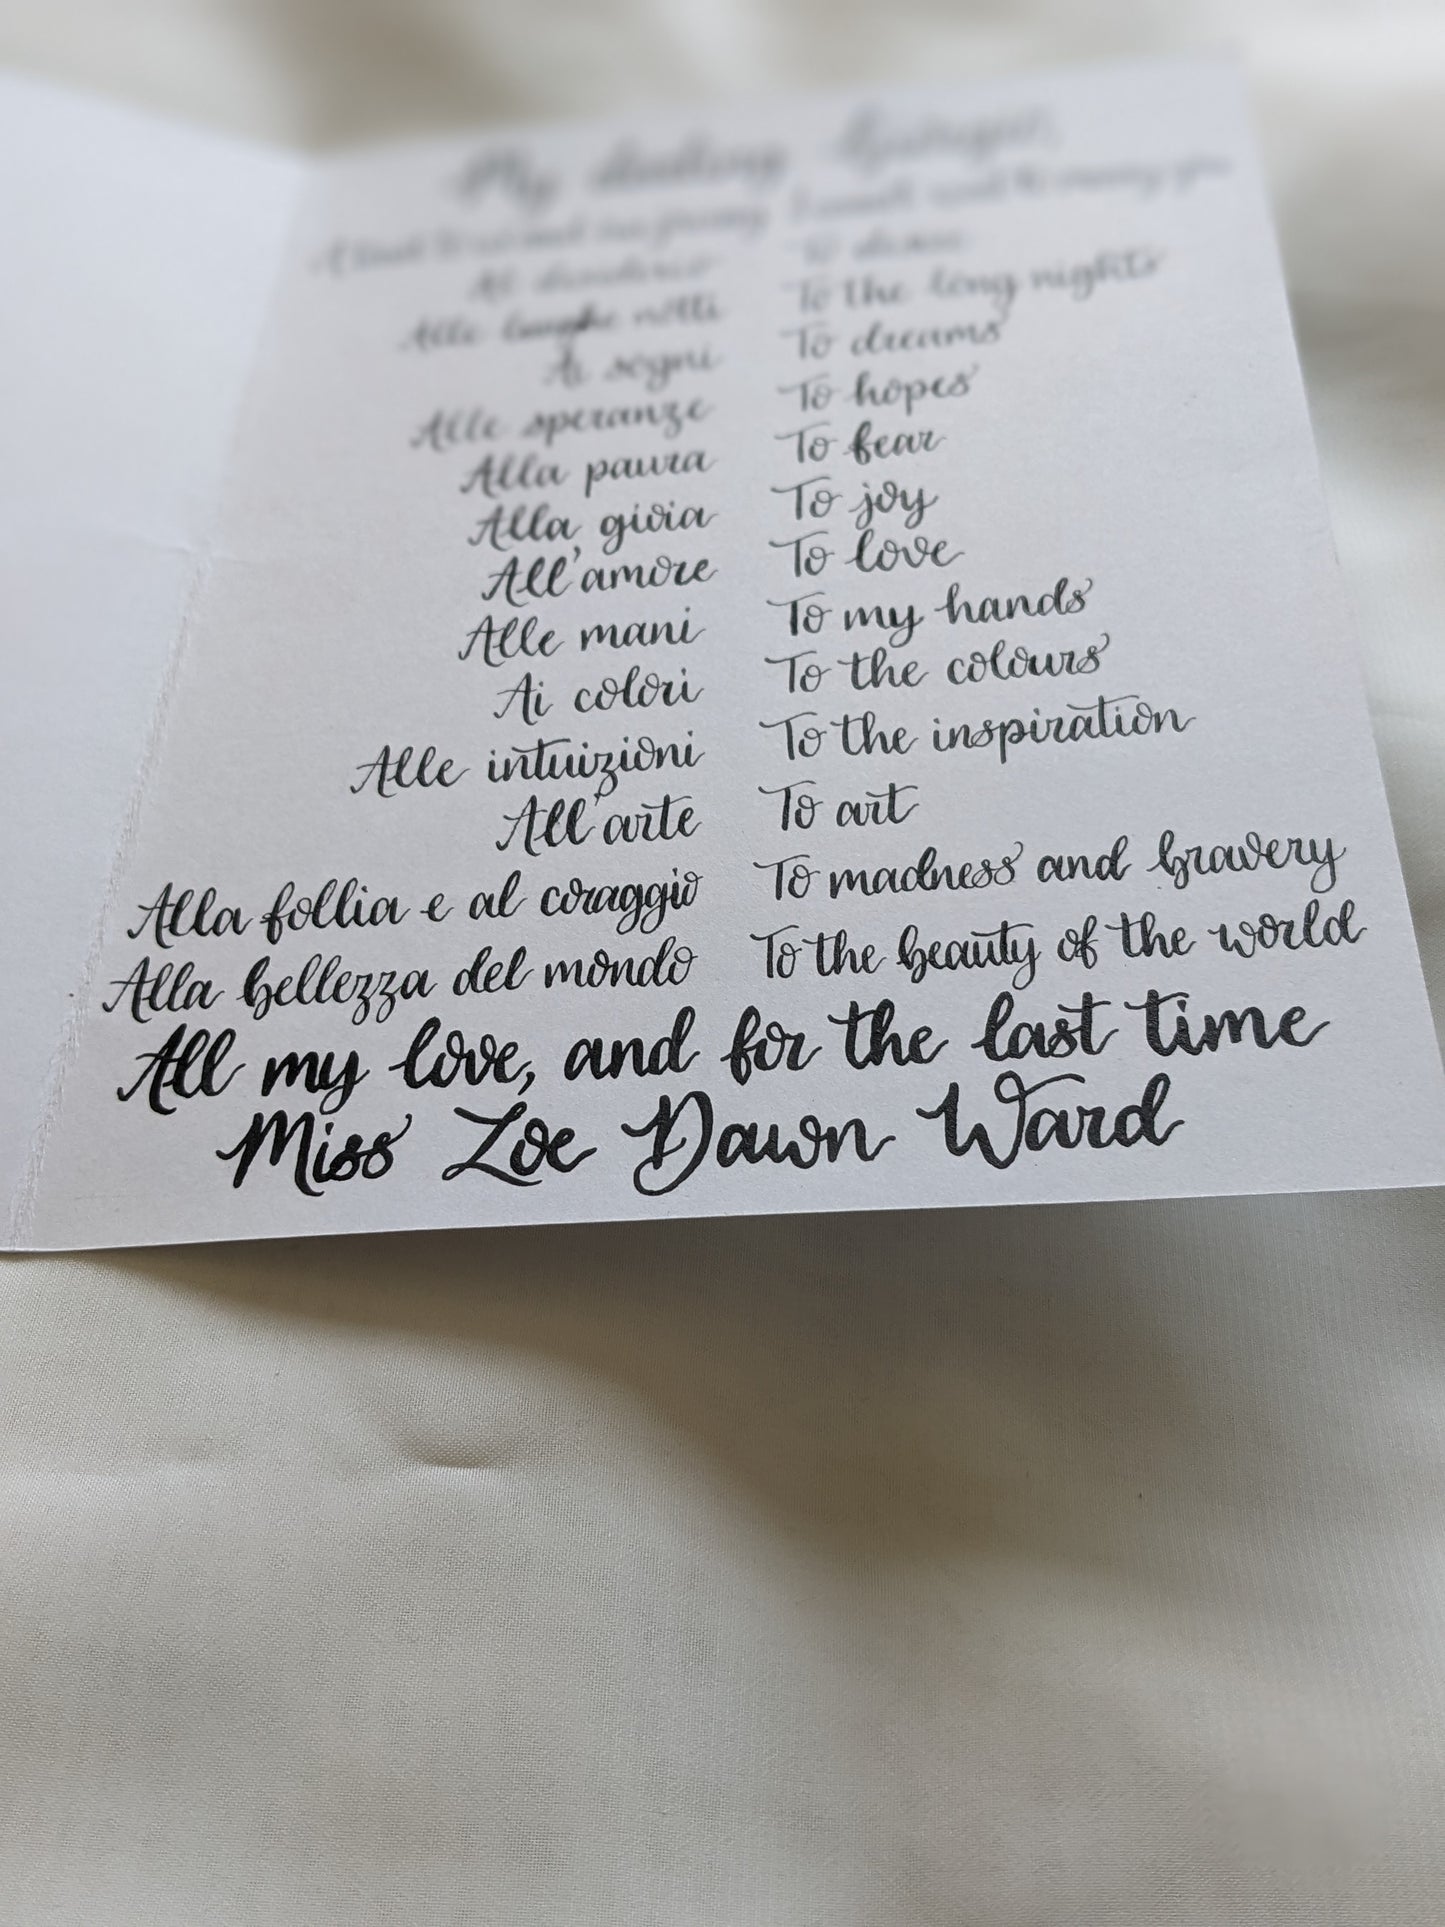 My darling
I cannot wait to marry you
Al desiderio To desire
Alle lunghe notti To the long nights
Ai sogni To dreams
Alle speranze To hopes
Alla paura To fear
Alla gioia To joy
All'amore To love
Alle mani To my hands
Ai colori To the colours
Alle intuizioni To the inspiration
All'arte To art
Alla follia e al coraggio To madness and bravery
Alla bellezza del mondo To the beauty of the world
All my love, and for the last time
Miss Zoe Dawn Ward